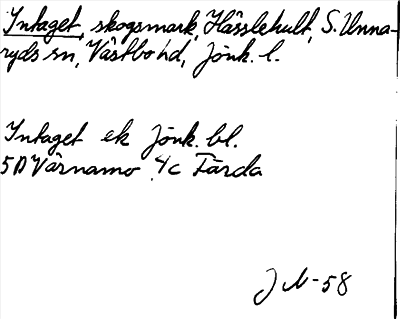 Intaget, skogsmark, Hässlehult, S. Unna-
ryds sn, Västbo hd, Jönk. l.
Intaget ek Jönk. bl.
5D Värnamo 4c Färda
J M-58